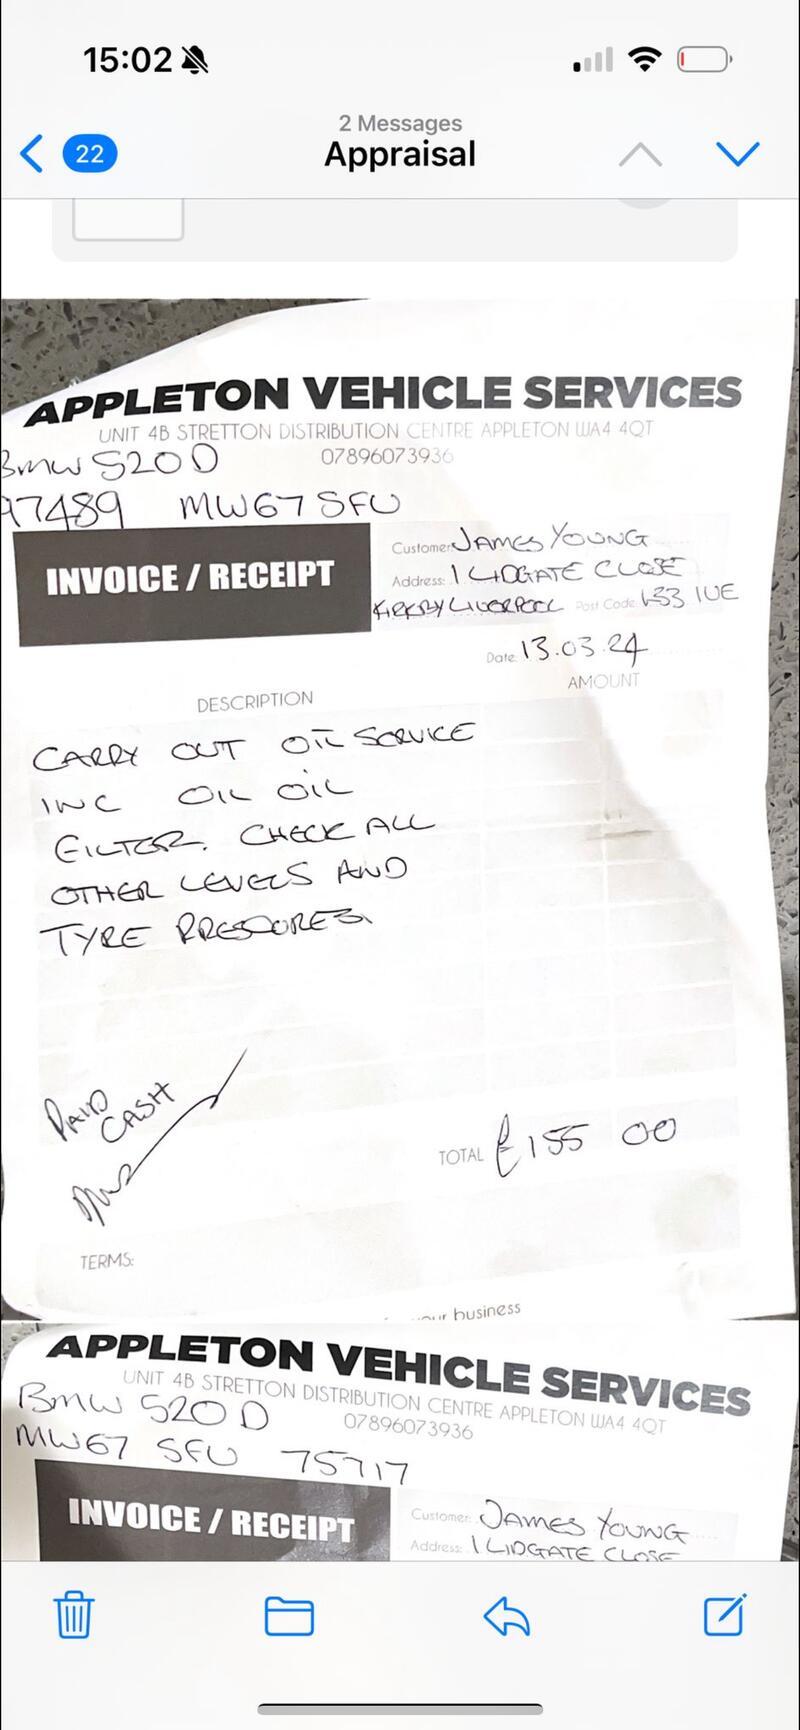 15:02
22
2 Messages
Appraisal
APPLETON VEHICLE SERVICES
UNIT 4B STRETTON DISTRIBUTION CENTRE APPLETON WA4 4QT
BMW 520D
07896073936
97489 MW67 SFU
INVOICE / RECEIPT
Customer: JAMES YOUNG
Address: 1 LIDGATE CLOSE
KIRKBY LIVERPOOL Post Code L33 1UE
Date 13.03.24
DESCRIPTION
AMOUNT
CARRY OUT OIL SERVICE
INC OIL OIL
FILTER. CHECK ALL
OTHER LEVELS AND
TYRE PRESSURES.
PAID
CASH
TOTAL £155 00
TERMS:
your business
APPLETON VEHICLE SERVICES
UNIT 4B STRETTON DISTRIBUTION CENTRE APPLETON WA4 4QT
BMW 520D
07896073936
MW67 SFU 75717
INVOICE / RECEIPT
Customer: JAMES YOUNG
Address: 1 LIDGATE CLOSE